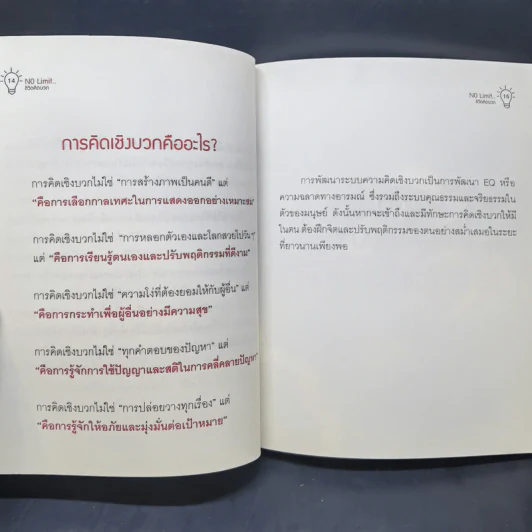 14
NO Limit..
ชีวิตคิดบวก
การคิดเชิงบวกคืออะไร?
การคิดเชิงบวกไม่ใช่ “การสร้างภาพเป็นคนดี” แต่
“คือการเลือกกาลเทศะในการแสดงออกอย่างเหมาะสม”
การคิดเชิงบวกไม่ใช่ “การหลอกตัวเองและโลกสวยไปวันๆ”
แต่ “คือการเรียนรู้ตนเองและปรับพฤติกรรมที่ดีงาม”
การคิดเชิงบวกไม่ใช่ “ความโง่ที่ต้องยอมให้กับผู้อื่น” แต่
“คือการกระทำเพื่อผู้อื่นอย่างมีความสุข”
การคิดเชิงบวกไม่ใช่ “ทุกคำตอบของปัญหา” แต่
“คือการรู้จักการใช้ปัญญาและสติในการคลี่คลายปัญหา”
การคิดเชิงบวกไม่ใช่ “การปล่อยวางทุกเรื่อง” แต่
“คือการรู้จักให้อภัยและมุ่งมั่นต่อเป้าหมาย”
NO Limit..
ชีวิตคิดบวก
15
การพัฒนาระบบความคิดเชิงบวกเป็นการพัฒนา EQ หรือ
ความฉลาดทางอารมณ์ ซึ่งรวมถึงระบบคุณธรรมและจริยธรรมใน
ตัวของมนุษย์ ดังนั้นหากจะเข้าถึงและมีทักษะการคิดเชิงบวกให้มี
ในตน ต้องฝึกจิตและปรับพฤติกรรมของตนอย่างสม่ำเสมอในระยะ
ที่ยาวนานเพียงพอ